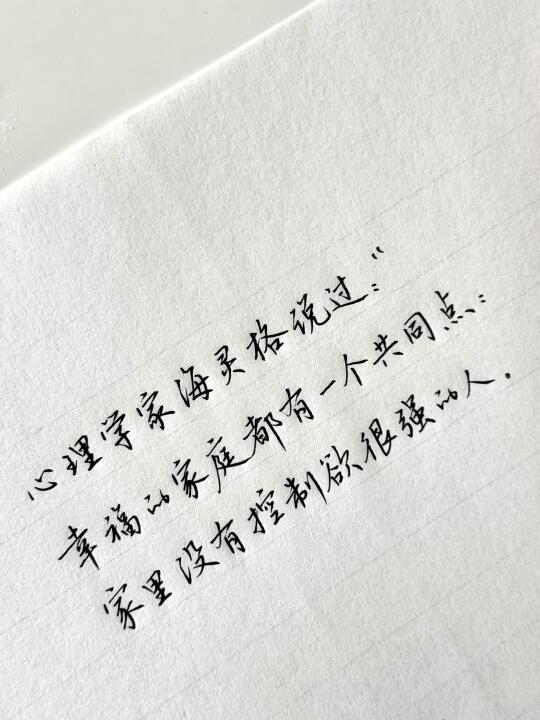 心理学家海灵格说过："
幸福的家庭都有一个共同点：
家里没有控制欲很强的人.